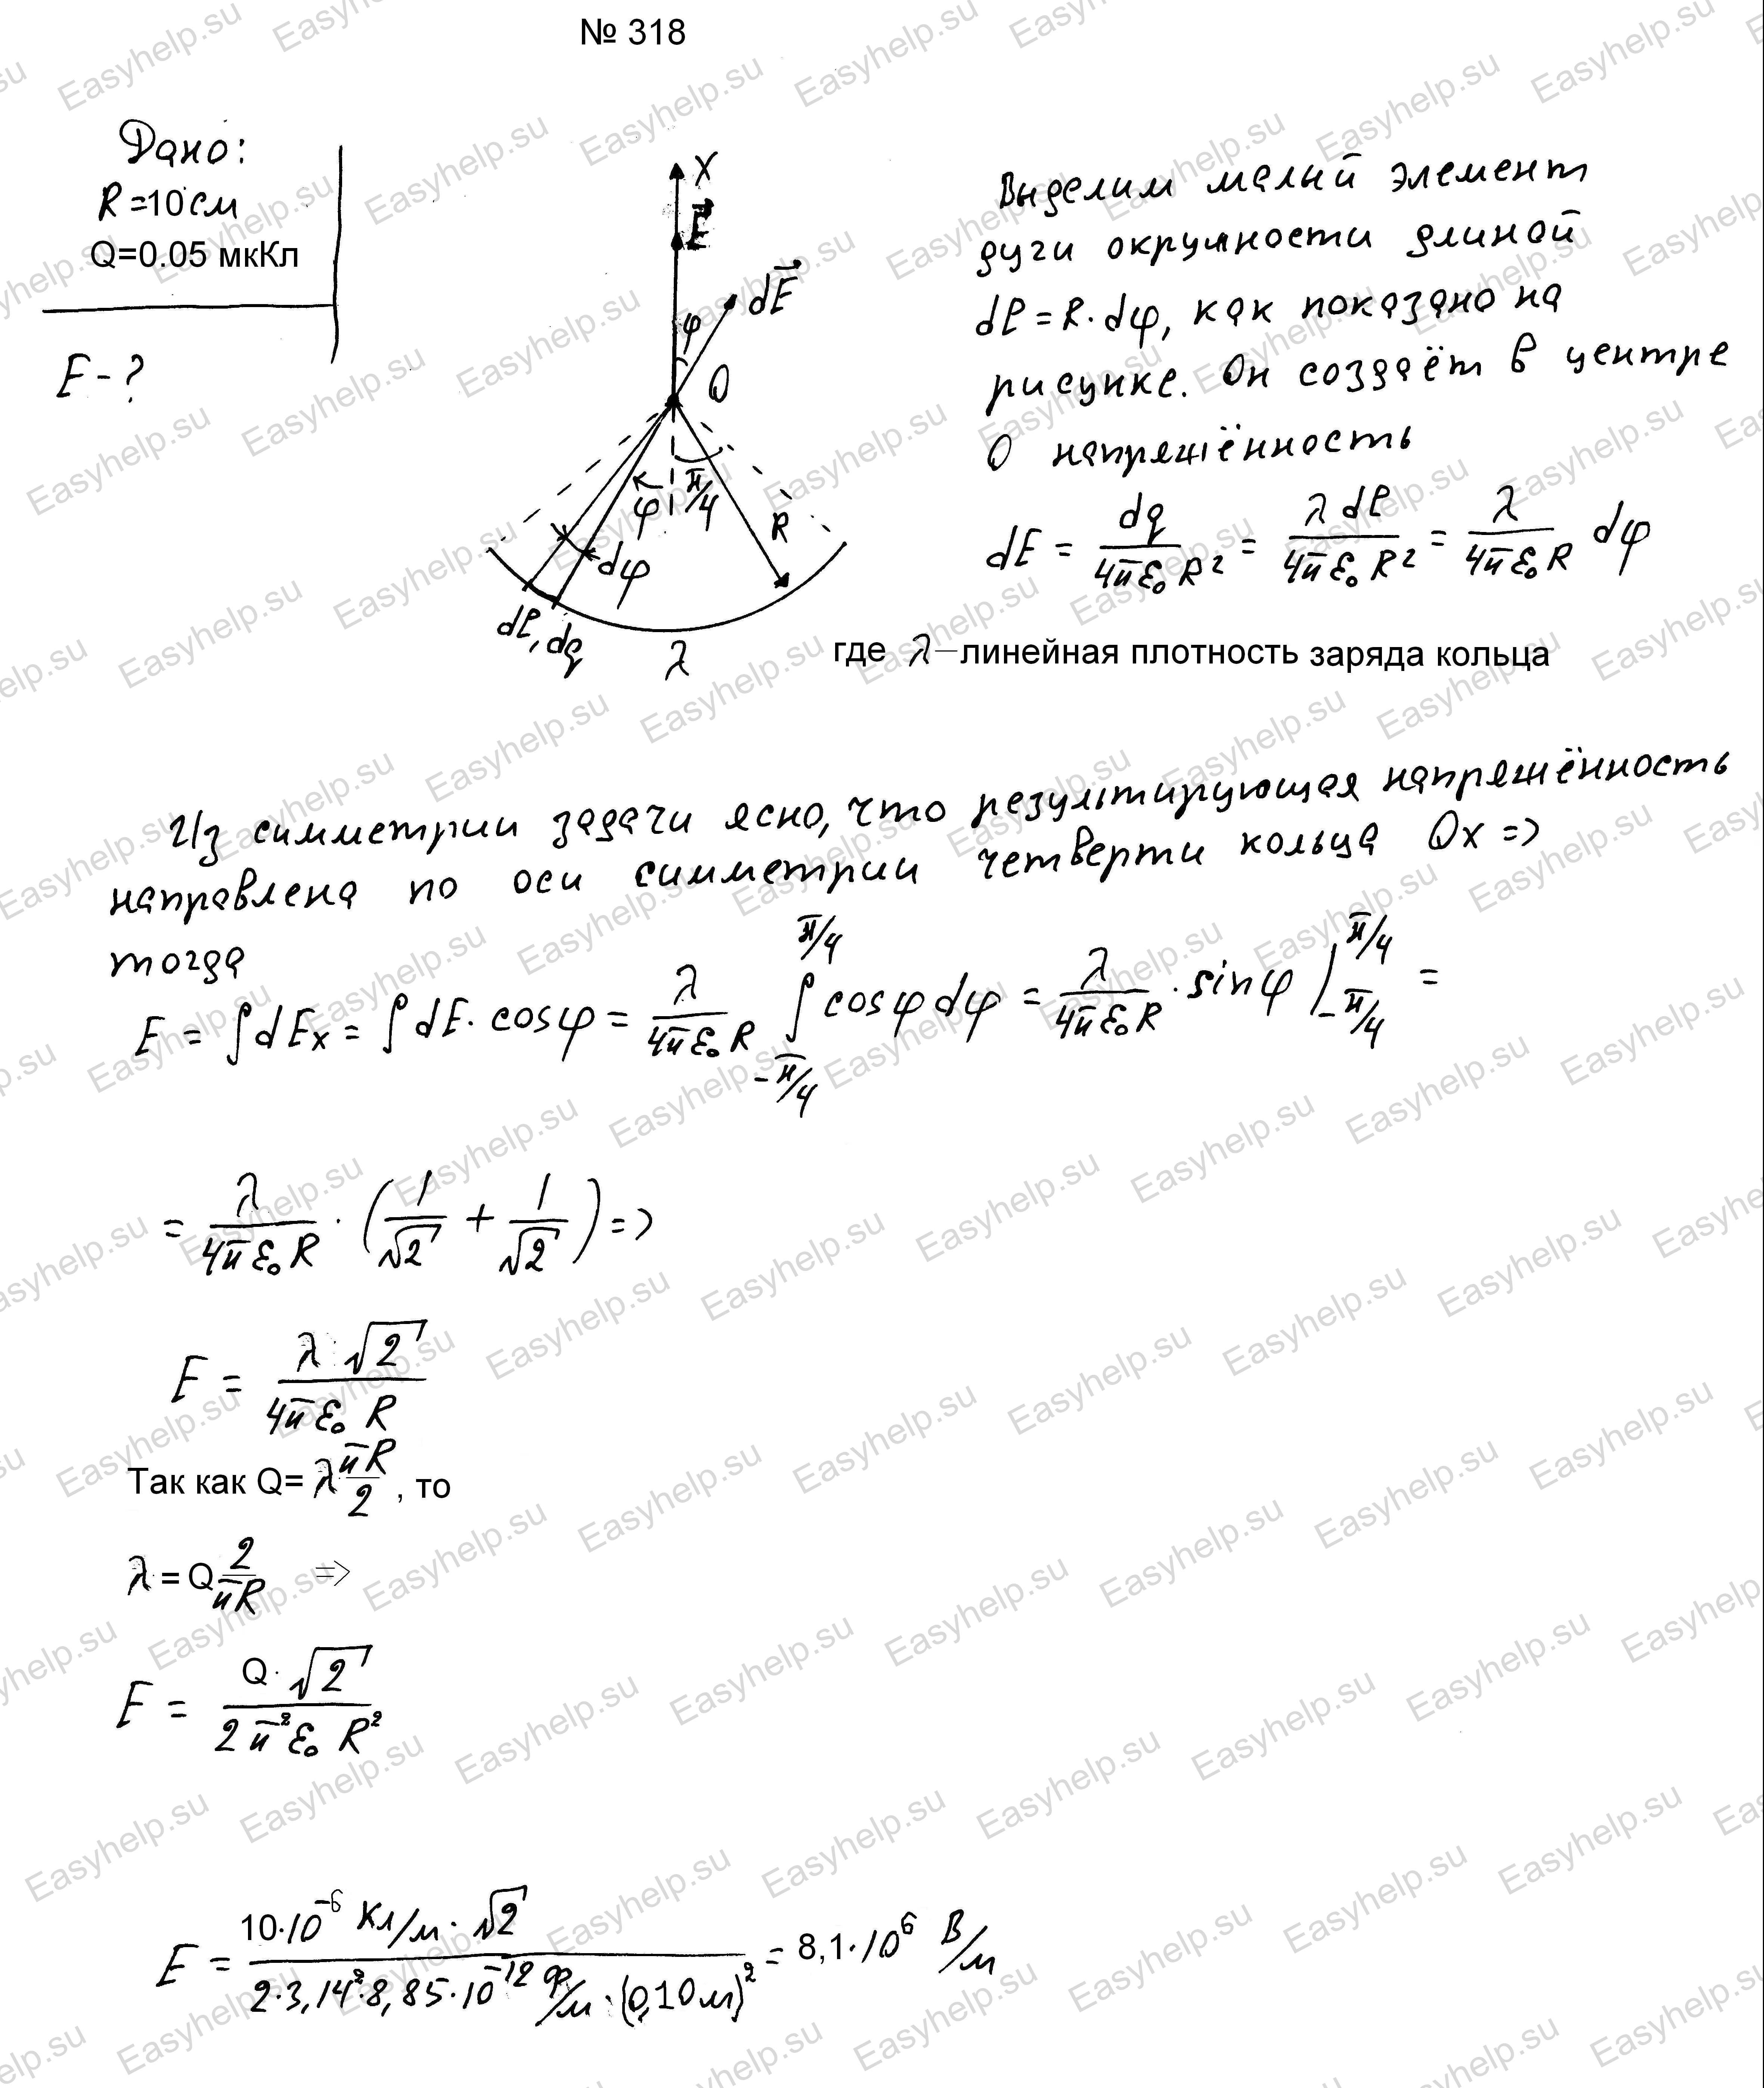 № 318
Дано:
R=10см
Q=0.05 мкКл
E-?
X
E⃗
dE⃗
φ
O
φ
π/4
R
dφ
dℓ, dq
λ
Выделим малый элемент
дуги окружности длиной
dℓ=R·dφ, как показано на
рисунке. Он создаёт в центре
O напряжённость
dE = dq/(4πε₀R²) = λdℓ/(4πε₀R²) = λ/(4πε₀R) dφ
где λ—линейная плотность заряда кольца
Из симметрии задачи ясно, что результирующая напряжённость
направлена по оси симметрии четверти кольца Ox =>
тогда
E = ∫dEx = ∫dE·cosφ = λ/(4πε₀R) ∫_{-π/4}^{π/4} cosφdφ = λ/(4πε₀R)·sinφ|_{-π/4}^{π/4} =
= λ/(4πε₀R)·(1/√2 + 1/√2) =>
E = λ·√2/(4πε₀R)
Так как Q=λ πR/2, то
λ=Q 2/πR =>
E = Q·√2/(2π²ε₀R²)
E = 10·10⁻⁶ Кл/м·√2/(2·3,14²·8,85·10⁻¹² Ф/м·(0,10м)²) = 8,1·10⁶ В/м
Easyhelp.su